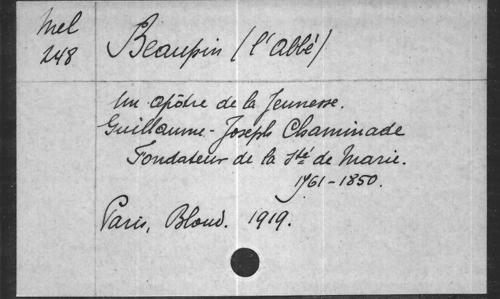 Mel
248
Beaupin (l'abbé)
Un apôtre de la Jeunesse.
Guillaume-Joseph Chaminade
Fondateur de la Sté de Marie.
1761-1850.
Paris, Bloud. 1919.